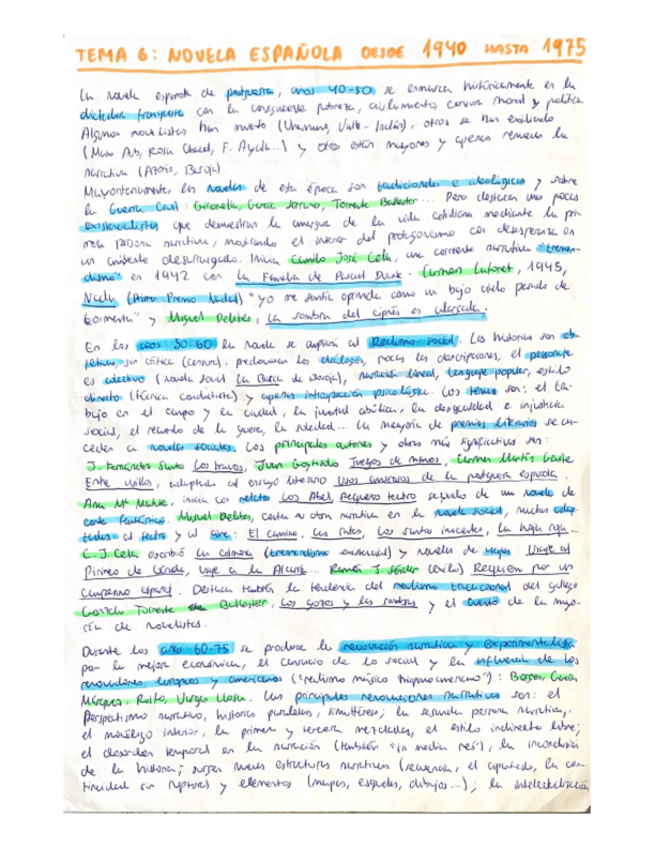 TEMA 6: NOVELA ESPAÑOLA DESDE 1940 HASTA 1975
La novela española de postguerra, años 40-50, se enmarca históricamente en la
dictadura franquista con la consiguiente pobreza, aislamiento, censura moral y política.
Algunos novelistas han muerto (Unamuno, Valle-Inclán), otros se han exiliado
(Max Aub, Rosa Chacel, F. Ayala...) y otros están mayores y apenas renuevan la
narrativa (Azorín, Baroja).
Mayoritariamente, las novelas de esta época son tradicionales e ideológicas y sobre
la Guerra Civil: Gironella, García Serrano, Torrente Ballester... Pero destacan unas pocas
existencialistas que demuestran la amargura de la vida cotidiana mediante la pri-
mera persona narrativa, mostrando el interior del protagonista con desesperanza en
un ambiente desarraigado. Inicia Camilo José Cela, una corriente narrativa "tremen-
dismo" en 1942 con La Familia de Pascual Duarte. Carmen Laforet, 1945,
Nada (Primer Premio Nadal) "yo me sentía oprimida como un bajo cielo pesado de
tormenta" y Miguel Delibes, La sombra del ciprés es alargada.
En los años 50-60 la novela se adscribe al Realismo social. Las historias son ob-
jetivas, sin crítica (censura), predominan los diálogos, pocas las descripciones, el personaje
es colectivo (novela social La Barca de Baroja), narración lineal, lenguaje popular, estilo
directo (técnica conductista) y apenas introspección psicológica. Los temas son: el tra-
bajo en el campo y la ciudad, la juventud abúlica, la desigualdad e injusticia
social, el recuerdo de la guerra, la soledad... La mayoría de premios literarios se con-
ceden a novelas sociales. Los principales autores y obras más significativas son:
J. Fernández Santos Los bravos, Juan Goytisolo Juegos de manos, Carmen Martín Gaite
Entre visillos, adaptada al ensayo literario Usos amorosos de la postguera española.
Ana Mª Matute, inicia con relato Los Abel, Pequeño teatro seguido de una novela de
corte fantástico. Miguel Delibes, centra su obra narrativa en la novela social, muchas adap-
tadas al teatro y al cine: El camino, Las ratas, Los santos inocentes, La hoja roja...
C. J. Cela escribió La colmena (tremendismo existencial) y novelas de viajes Viaje al
Pirineo de Lérida, Viaje a la Alcarria... Ramón J. Sénder (exilio) Requiem por un
campesino español. Destaca también la tendencia del realismo tradicional del gallego
Gonzalo Torrente Ballester, Los gozos y las sombras y el cuento de la mayo-
ría de novelistas.
Durante los años 60-75 se produce la renovación narrativa y experimentalista
por la mejor económica, el cansancio de lo social y la influencia de los
renovadores europeos y americanos ("realismo mágico hispanoamericano"): Borges, García
Márquez, Rulfo, Vargas Llosa. Las principales renovaciones narrativas son: el
Perspectivismo narrativo, historias paralelas, simultáneas; la segunda persona narrativa,
el monólogo interior, la primera y tercera mezcladas, el estilo indirecto libre;
el desorden temporal en la narración (también "in media res"), la inconclusión
de la historia; surgen nuevas estructuras narrativas (secuencia, el apartado, la con-
tinuidad sin rupturas) y elementos (mapas, esquelas, dibujos...); la intelectualización